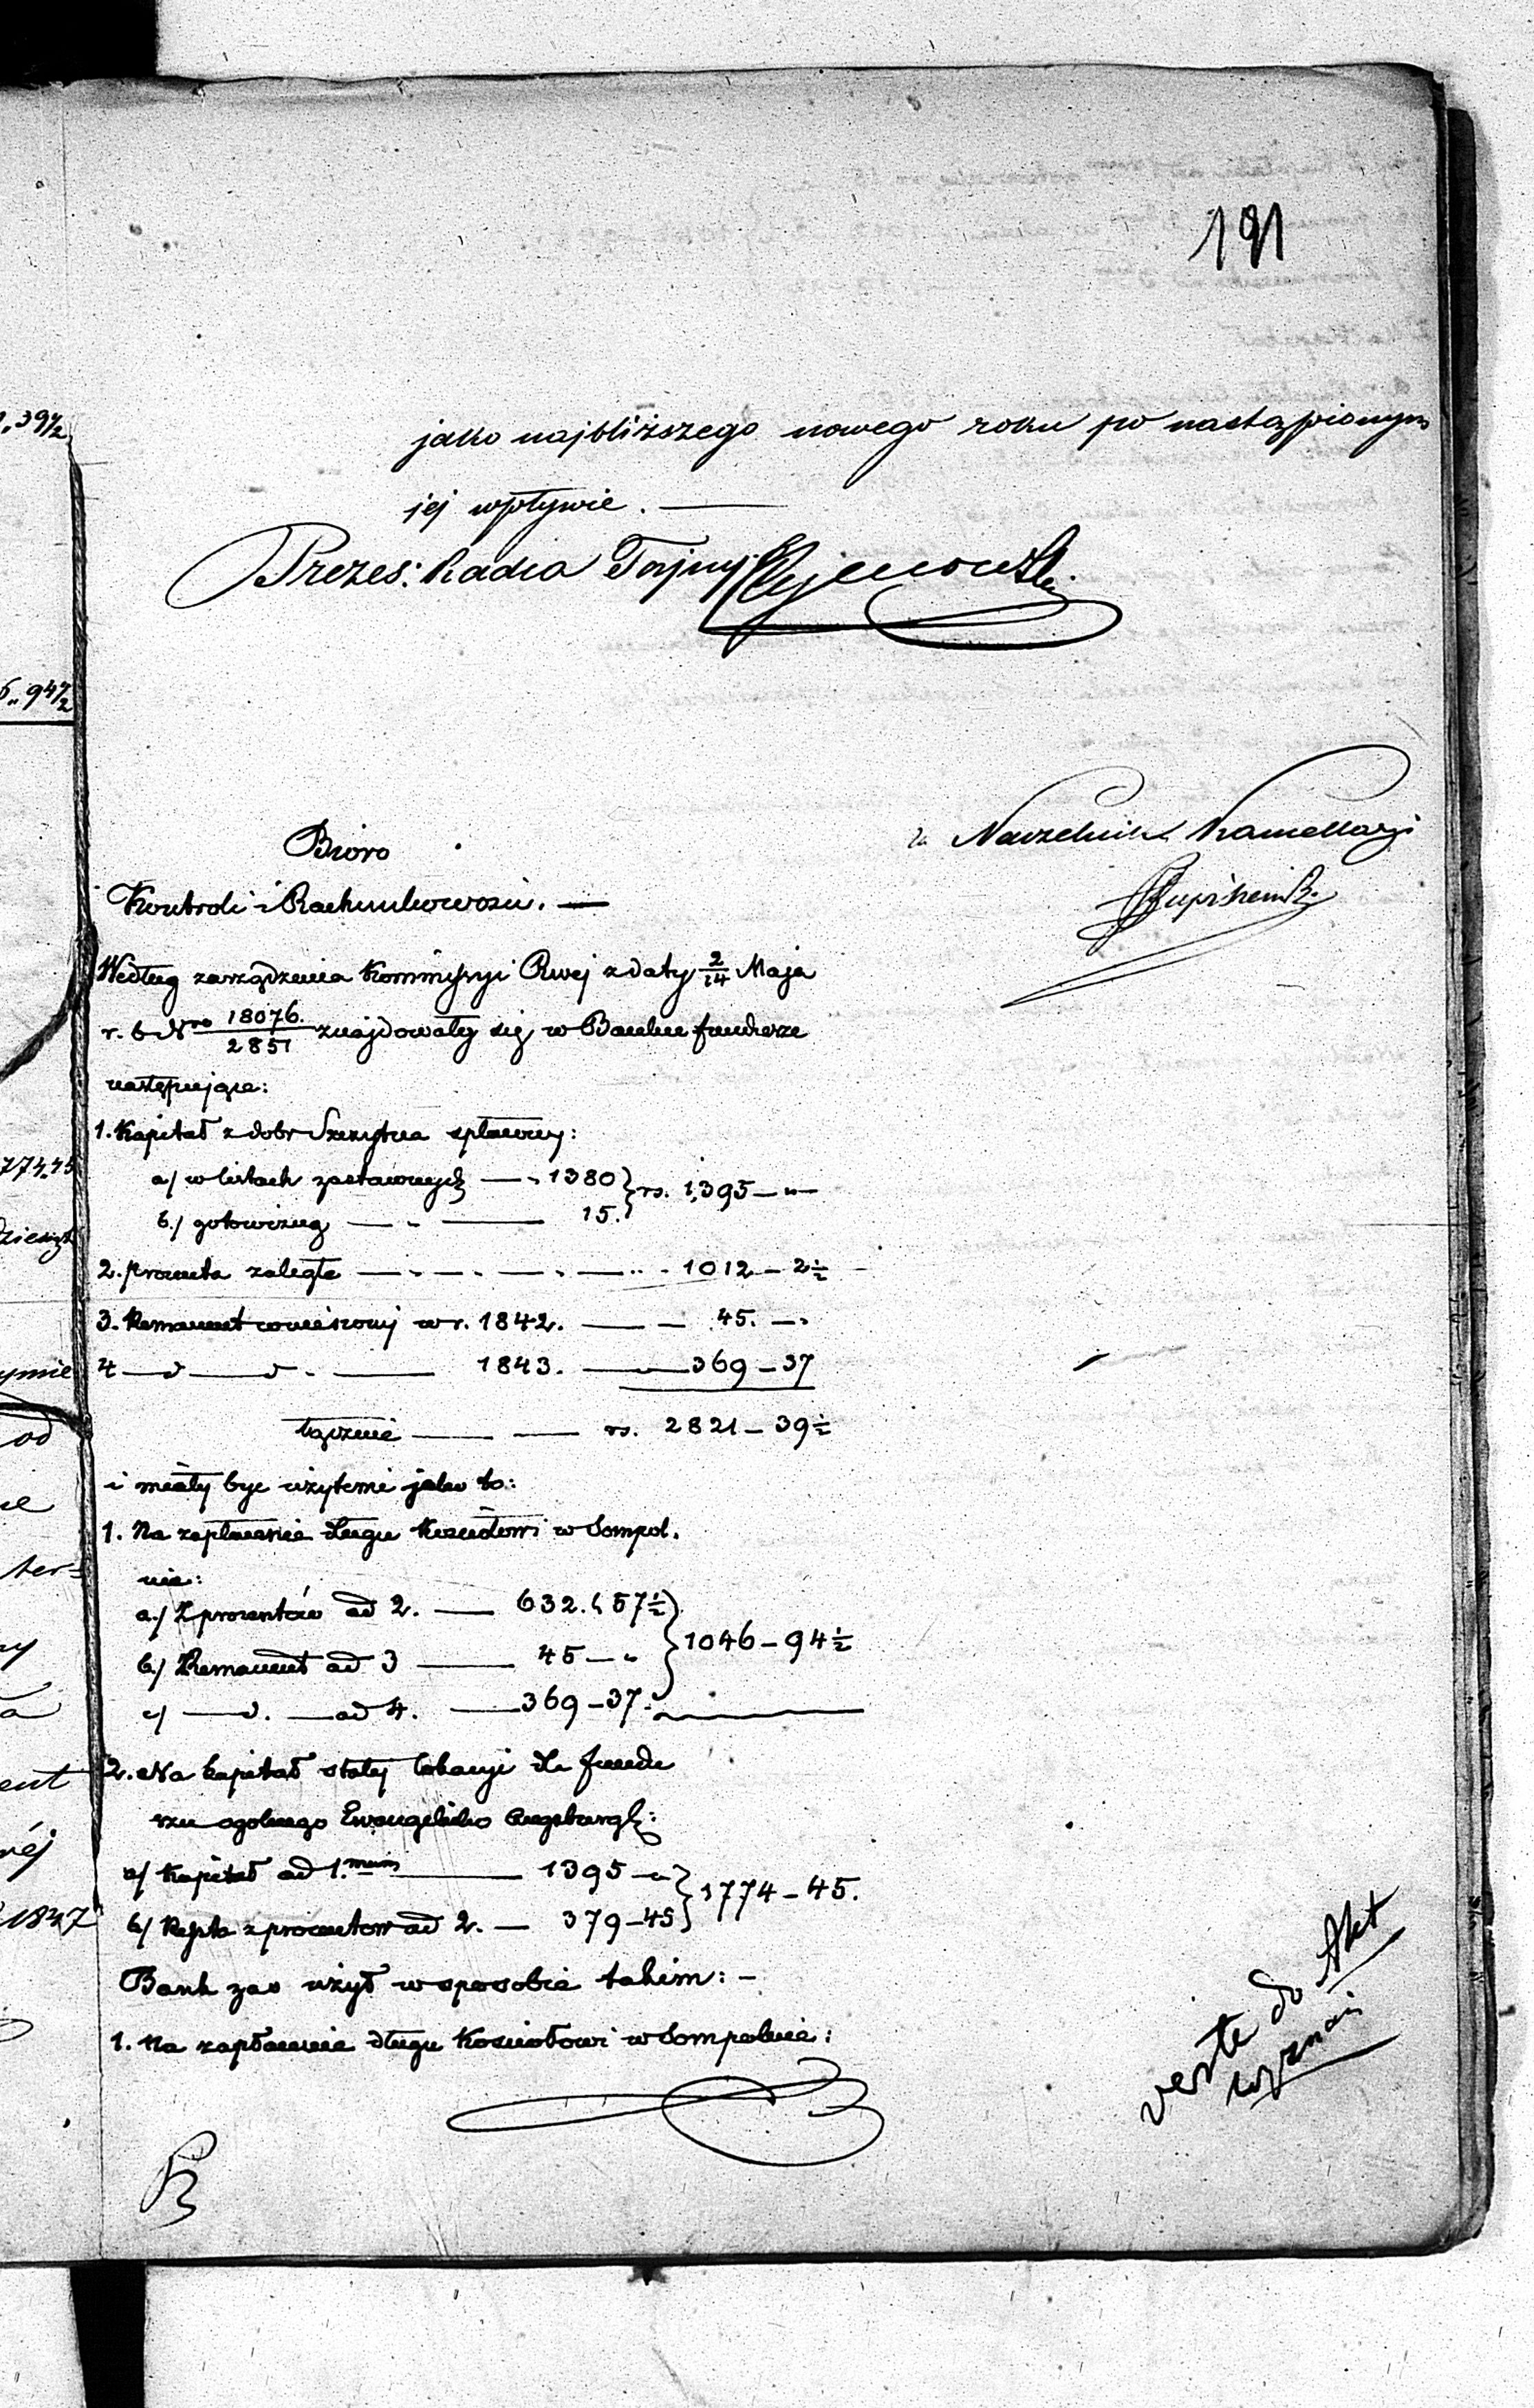 191
jako najbliższego nowego roku po nastąpionym
jej wpływie. —
Prezes: Radca Tajny
Naczelnik Kancellaryi
Bióro
Kontroli i Rachunkowości. —
Według zarządzenia Kommissyi Rwej z daty 2/14 Maja
r. b. Nro 18076./2851 znajdowały się w Banku fundusze
następujące:
1. Kapitał z dobr Szczytna spłacony:
a/ w listach zastawnych — 1380 } rs. 1,395 — „ —
b./ gotowizną — 15.
2. procenta zaległe — 1012 — 2½
3. Remanent wniesiony w r. 1842. — 45. —
4 — d — d — 1843. — 369 — 37
łącznie — rs. 2821 — 39½
i miały być użytemi jako to:
1. Na zapłacenie długu Kościołowi w Sompol.
nie:
a./ Z procentów ad 2. — 632. 57½ } 1046 — 94½
b./ Remanent ad 3 — 45 — „
c/ — d. — ad 4. — 369 — 37.
2. Na kapitał stałej lokacyi dla fundu
szu ogolnego Ewangelicko Augsburgs:
a/ Kapitał ad 1.mum — 1395 — „ } 1774 — 45.
b/ Reszta z procentow ad 2. — 379 — 45
Bank zas użył w sposobie takim: —
1. Na zapłacenie długu Kosciołowi w Sompolnie:
do Akt
wyznań
1847